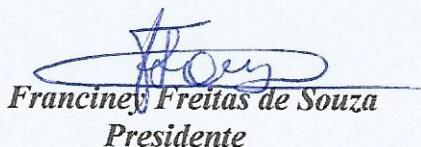 Franciney Freitas de Souza
Presidente